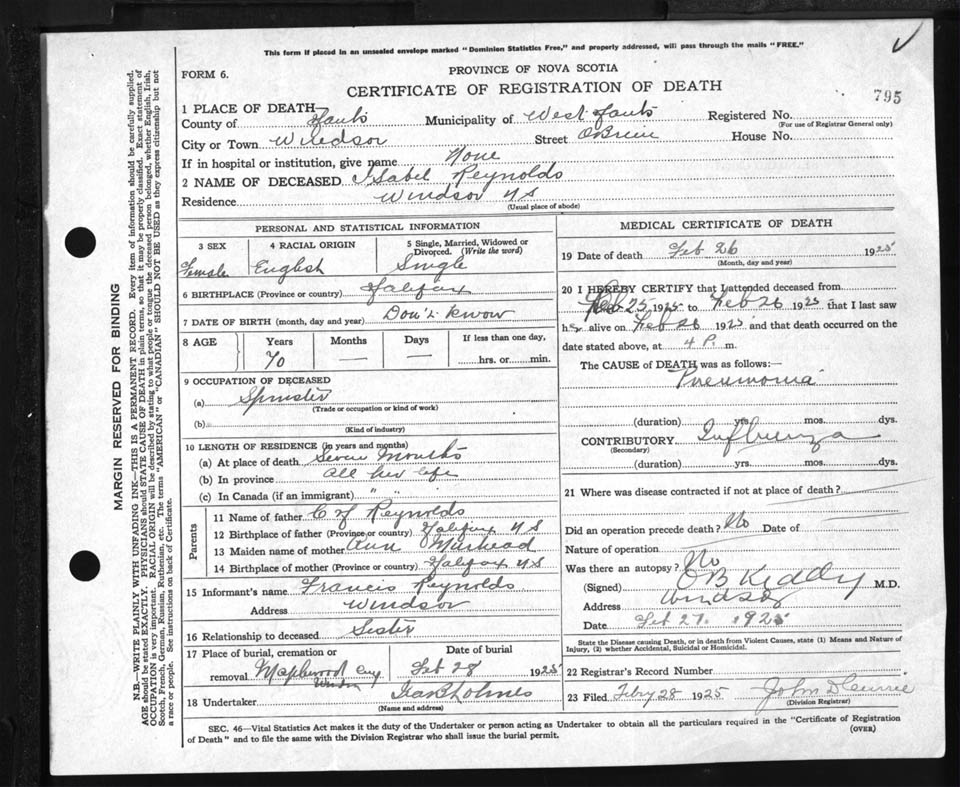 This form if placed in an unsealed envelope marked "Dominion Statistics Free," and properly addressed, will pass through the mails "FREE."
FORM 6.
PROVINCE OF NOVA SCOTIA
CERTIFICATE OF REGISTRATION OF DEATH
795
1 PLACE OF DEATH
County of Hants Municipality of West Hants Registered No.
(For use of Registrar General only)
City or Town Windsor Street OBrien House No.
If in hospital or institution, give name None
2 NAME OF DECEASED Isabel Reynolds
Residence Windsor N S
(Usual place of abode)
PERSONAL AND STATISTICAL INFORMATION
3 SEX 4 RACIAL ORIGIN 5 Single, Married, Widowed or Divorced. (Write the word)
Female English Single
6 BIRTHPLACE (Province or country) Halifax
7 DATE OF BIRTH (month, day and year) Don't know
8 AGE Years Months Days If less than one day,
70 — — hrs. or min.
9 OCCUPATION OF DECEASED
(a) Spinster
(Trade or occupation or kind of work)
(b)
(Kind of industry)
10 LENGTH OF RESIDENCE (in years and months)
(a) At place of death Seven Months
(b) In province all her life
(c) In Canada (if an immigrant) " "
Parents
11 Name of father Reynolds
12 Birthplace of father (Province or country) Halifax N S
13 Maiden name of mother Ann
14 Birthplace of mother (Province or country) Halifax N S
15 Informant's name Francis Reynolds
Address Windsor
16 Relationship to deceased Sister
17 Place of burial, cremation or removal Maplewood Cmy Windsor
Date of burial Feb 28 1925
18 Undertaker Holmes
(Name and address)
MEDICAL CERTIFICATE OF DEATH
19 Date of death Feb 26 1925
(Month, day and year)
20 I HEREBY CERTIFY that I attended deceased from
Feb 25 1925 to Feb 26 1925 that I last saw
her alive on Feb 26 1925 and that death occurred on
date stated above, at 4 P. m.
The CAUSE of DEATH was as follows:—
Pneumonia
(duration) yrs. mos. dys.
CONTRIBUTORY Influenza
(Secondary)
(duration) yrs. mos. dys.
21 Where was disease contracted if not at place of death?
Did an operation precede death? No Date of
Nature of operation
Was there an autopsy? No
(Signed) O B Keddy M.D.
Address Windsor
Date Feb 27 1925
State the Disease causing Death, or in death from Violent Causes, state (1) Means and Nature of
Injury, (2) whether Accidental, Suicidal or Homicidal.
22 Registrar's Record Number
23 Filed Feby 28 1925 John D Currie
(Division Registrar)
SEC. 46—Vital Statistics Act makes it the duty of the Undertaker or person acting as Undertaker to obtain all the particulars required in the "Certificate of Registration
of Death" and to file the same with the Division Registrar who shall issue the burial permit.
(OVER)
MARGIN RESERVED FOR BINDING
N.B.—WRITE PLAINLY WITH UNFADING INK—THIS IS A PERMANENT RECORD. Every item of information should be carefully supplied.
AGE should be stated EXACTLY. PHYSICIANS should STATE CAUSE OF DEATH in plain terms, so that it may be properly classified. Exact statement of
OCCUPATION is very important. RACIAL ORIGIN will be described by stating to what people or tongue the deceased person belonged, whether English, Irish,
Scotch, French, German, Russian, Ruthenian, etc. The terms "AMERICAN" or "CANADIAN" SHOULD NOT BE USED as they express citizenship but not
a race or people. See instructions on back of Certificate.